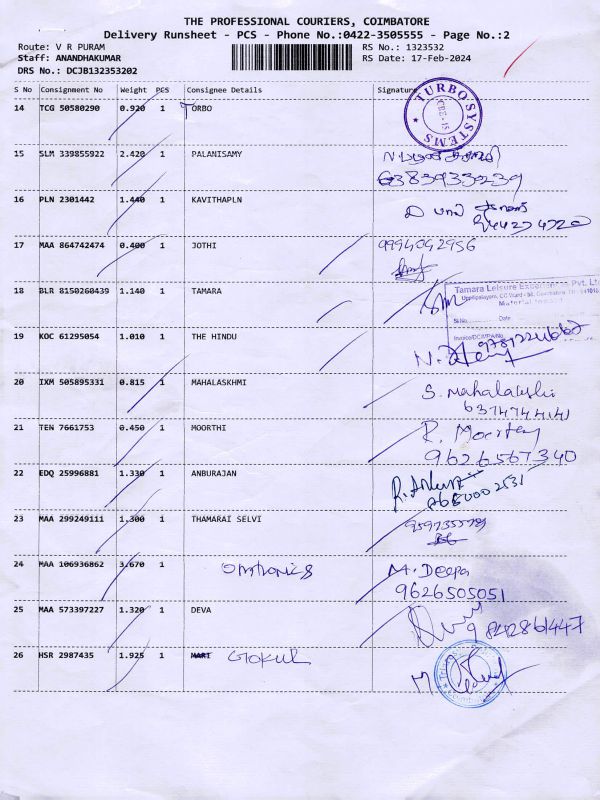 THE PROFESSIONAL COURIERS, COIMBATORE
Delivery Runsheet - PCS - Phone No.:0422-3505555 - Page No.:2
Route: V R PURAM
RS No.: 1323532
Staff: ANANDHAKUMAR
RS Date: 17-Feb-2024
DRS No.: DCJB132353202
S No Consignment No Weight PCS Consignee Details Signature
14 TCG 50580290 0.920 1 TORBO
TURBO SYSTEMS
CBE-18
15 SLM 339855922 2.420 1 PALANISAMY
63839330239
16 PLN 2301442 1.440 1 KAVITHAPLN
17 MAA 864742474 0.400 1 JOTHI 9994042956
18 BLR 8150260439 1.140 1 TAMARA
Tamara Leisure Experiences Pvt. Lt
Material Inward
Sl No. Date
19 KOC 61295054 1.010 1 THE HINDU
20 IXM 505895331 0.815 1 MAHALASKHMI S. Mahalakshi
6374744141
21 TEN 7661753 0.450 1 MOORTHI R. Moorthy
9626567340
22 EDQ 25996881 1.330 1 ANBURAJAN
23 MAA 299249111 1.300 1 THAMARAI SELVI
24 MAA 106936862 3.670 1 M. Deepa
9626505051
25 MAA 573397227 1.320 1 DEVA
9842861447
26 HSR 2987435 1.925 1 MART Gokul